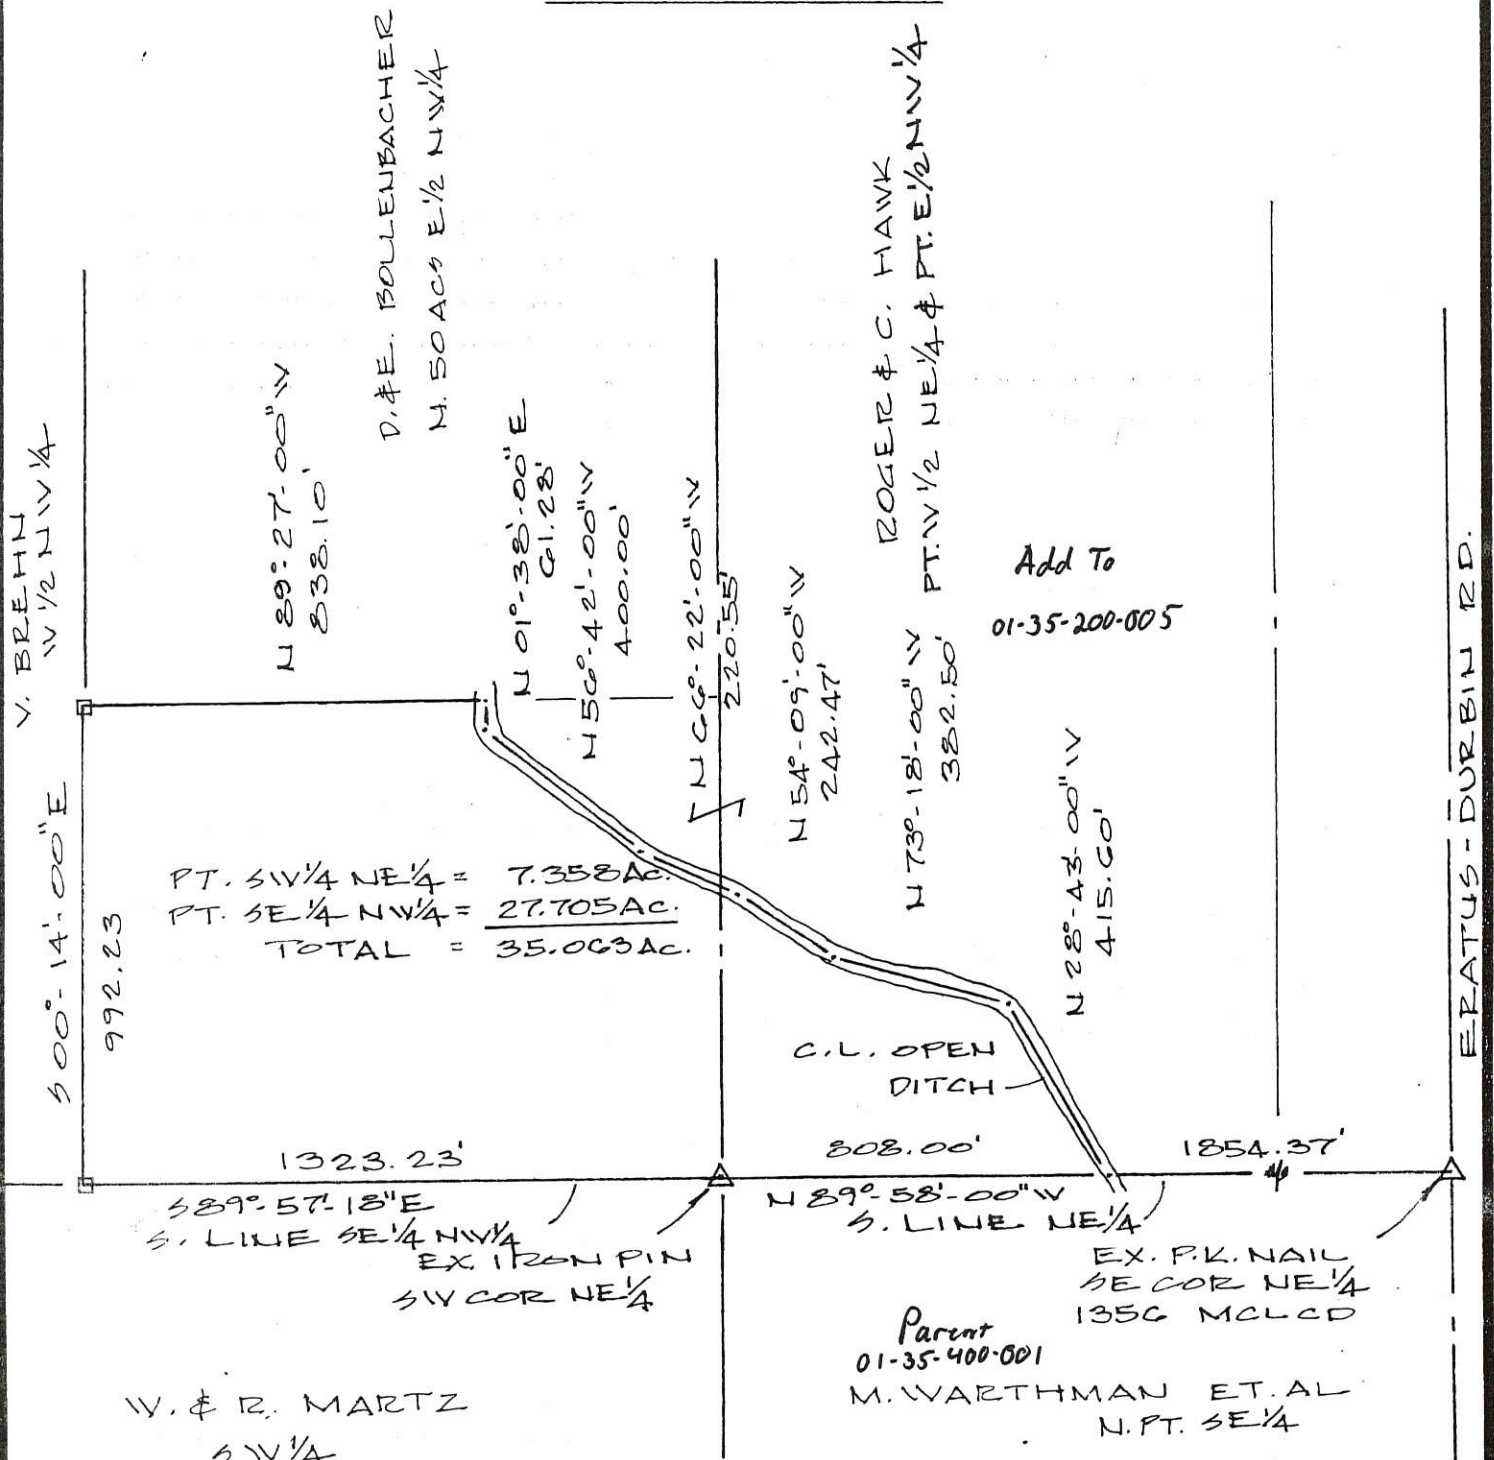 D. & E. BOLLENBACHER
N. 50 ACS E 1/2 NW 1/4
ROGER & C. HAWK
PT. W 1/2 NE 1/4 & PT. E 1/2 NW 1/4
V. BREHN
W 1/2 NW 1/4
N 89°-27'-00" W
838.10'
N 01°-38'-00" E
61.28'
N 56°-42'-00" W
400.00'
N 66°-22'-00" W
220.55'
N 54°-09'-00" W
242.47'
N 73°-18'-00" W
382.50'
N 28°-43'-00" W
415.60'
Add To
01-35-200-005
ERATUS-DURBIN RD.
S 00°-14'-00" E
992.23
PT. SW 1/4 NE 1/4 = 7.358 AC.
PT. SE 1/4 NW 1/4 = 27.705 AC.
TOTAL = 35.063 AC.
C.L. OPEN
DITCH
1323.23'
808.00'
1854.37'
S 89°-57'-18" E
S. LINE SE 1/4 NW 1/4
N 89°-58'-00" W
S. LINE NE 1/4
EX. IRON PIN
SW COR NE 1/4
EX. P.K. NAIL
SE COR NE 1/4
1356 MCLCD
Parent
01-35-400-001
M. WARTHMAN ET. AL
N. PT. SE 1/4
W. & R. MARTZ
SW 1/4